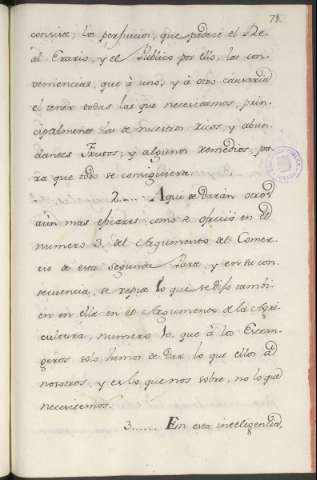 78.
convive; los perjuicios, que padece el Re-
al Erario, y el Publico por ello; las con-
veniencias, que à uno, y à otro causaría
el tener todas las que necesitamos, prin-
cipalmente las de nuestros ricos, y abun-
dantes Frutos; y algunos remedios, pa-
ra que todo se consiguiera.
2..... Aqui se darán otros
aún mas eficaces como se ofreció en el
numero 3. del Argumento del Comer-
cio de esta segunda Parte, y en su con-
secuencia, se repite lo que se dixo tambi-
en en ella en el Argumento de la Agri-
cultura, numero 10, que à los Estran-
geros solo hemos de dar lo que ellos à
nosotros, y es lo que nos sobre, no lo que
necesitemos.
3...... En esta inteligencia,